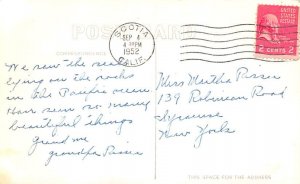 POST CARD
SCOTIA
SEP 4
4 PM
1952
CALIF.
UNITED STATES POSTAGE
2 CENTS 2
We saw the seals
lying on the rocks
in the Pacific ocean.
Have seen so many
beautiful things
Grand ma
grandpa
Miss Martha
139 Robineau Road
Syracuse
New York
THIS SPACE FOR THE ADDRESS